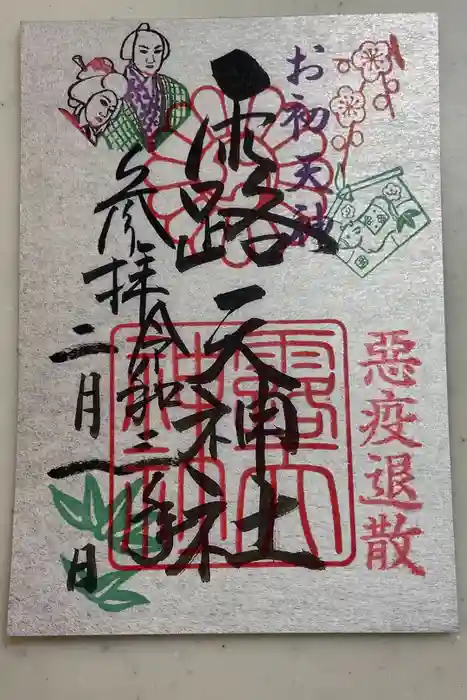 惡疫退散
お初天神
露天神社
参拝令和三年
二月一日